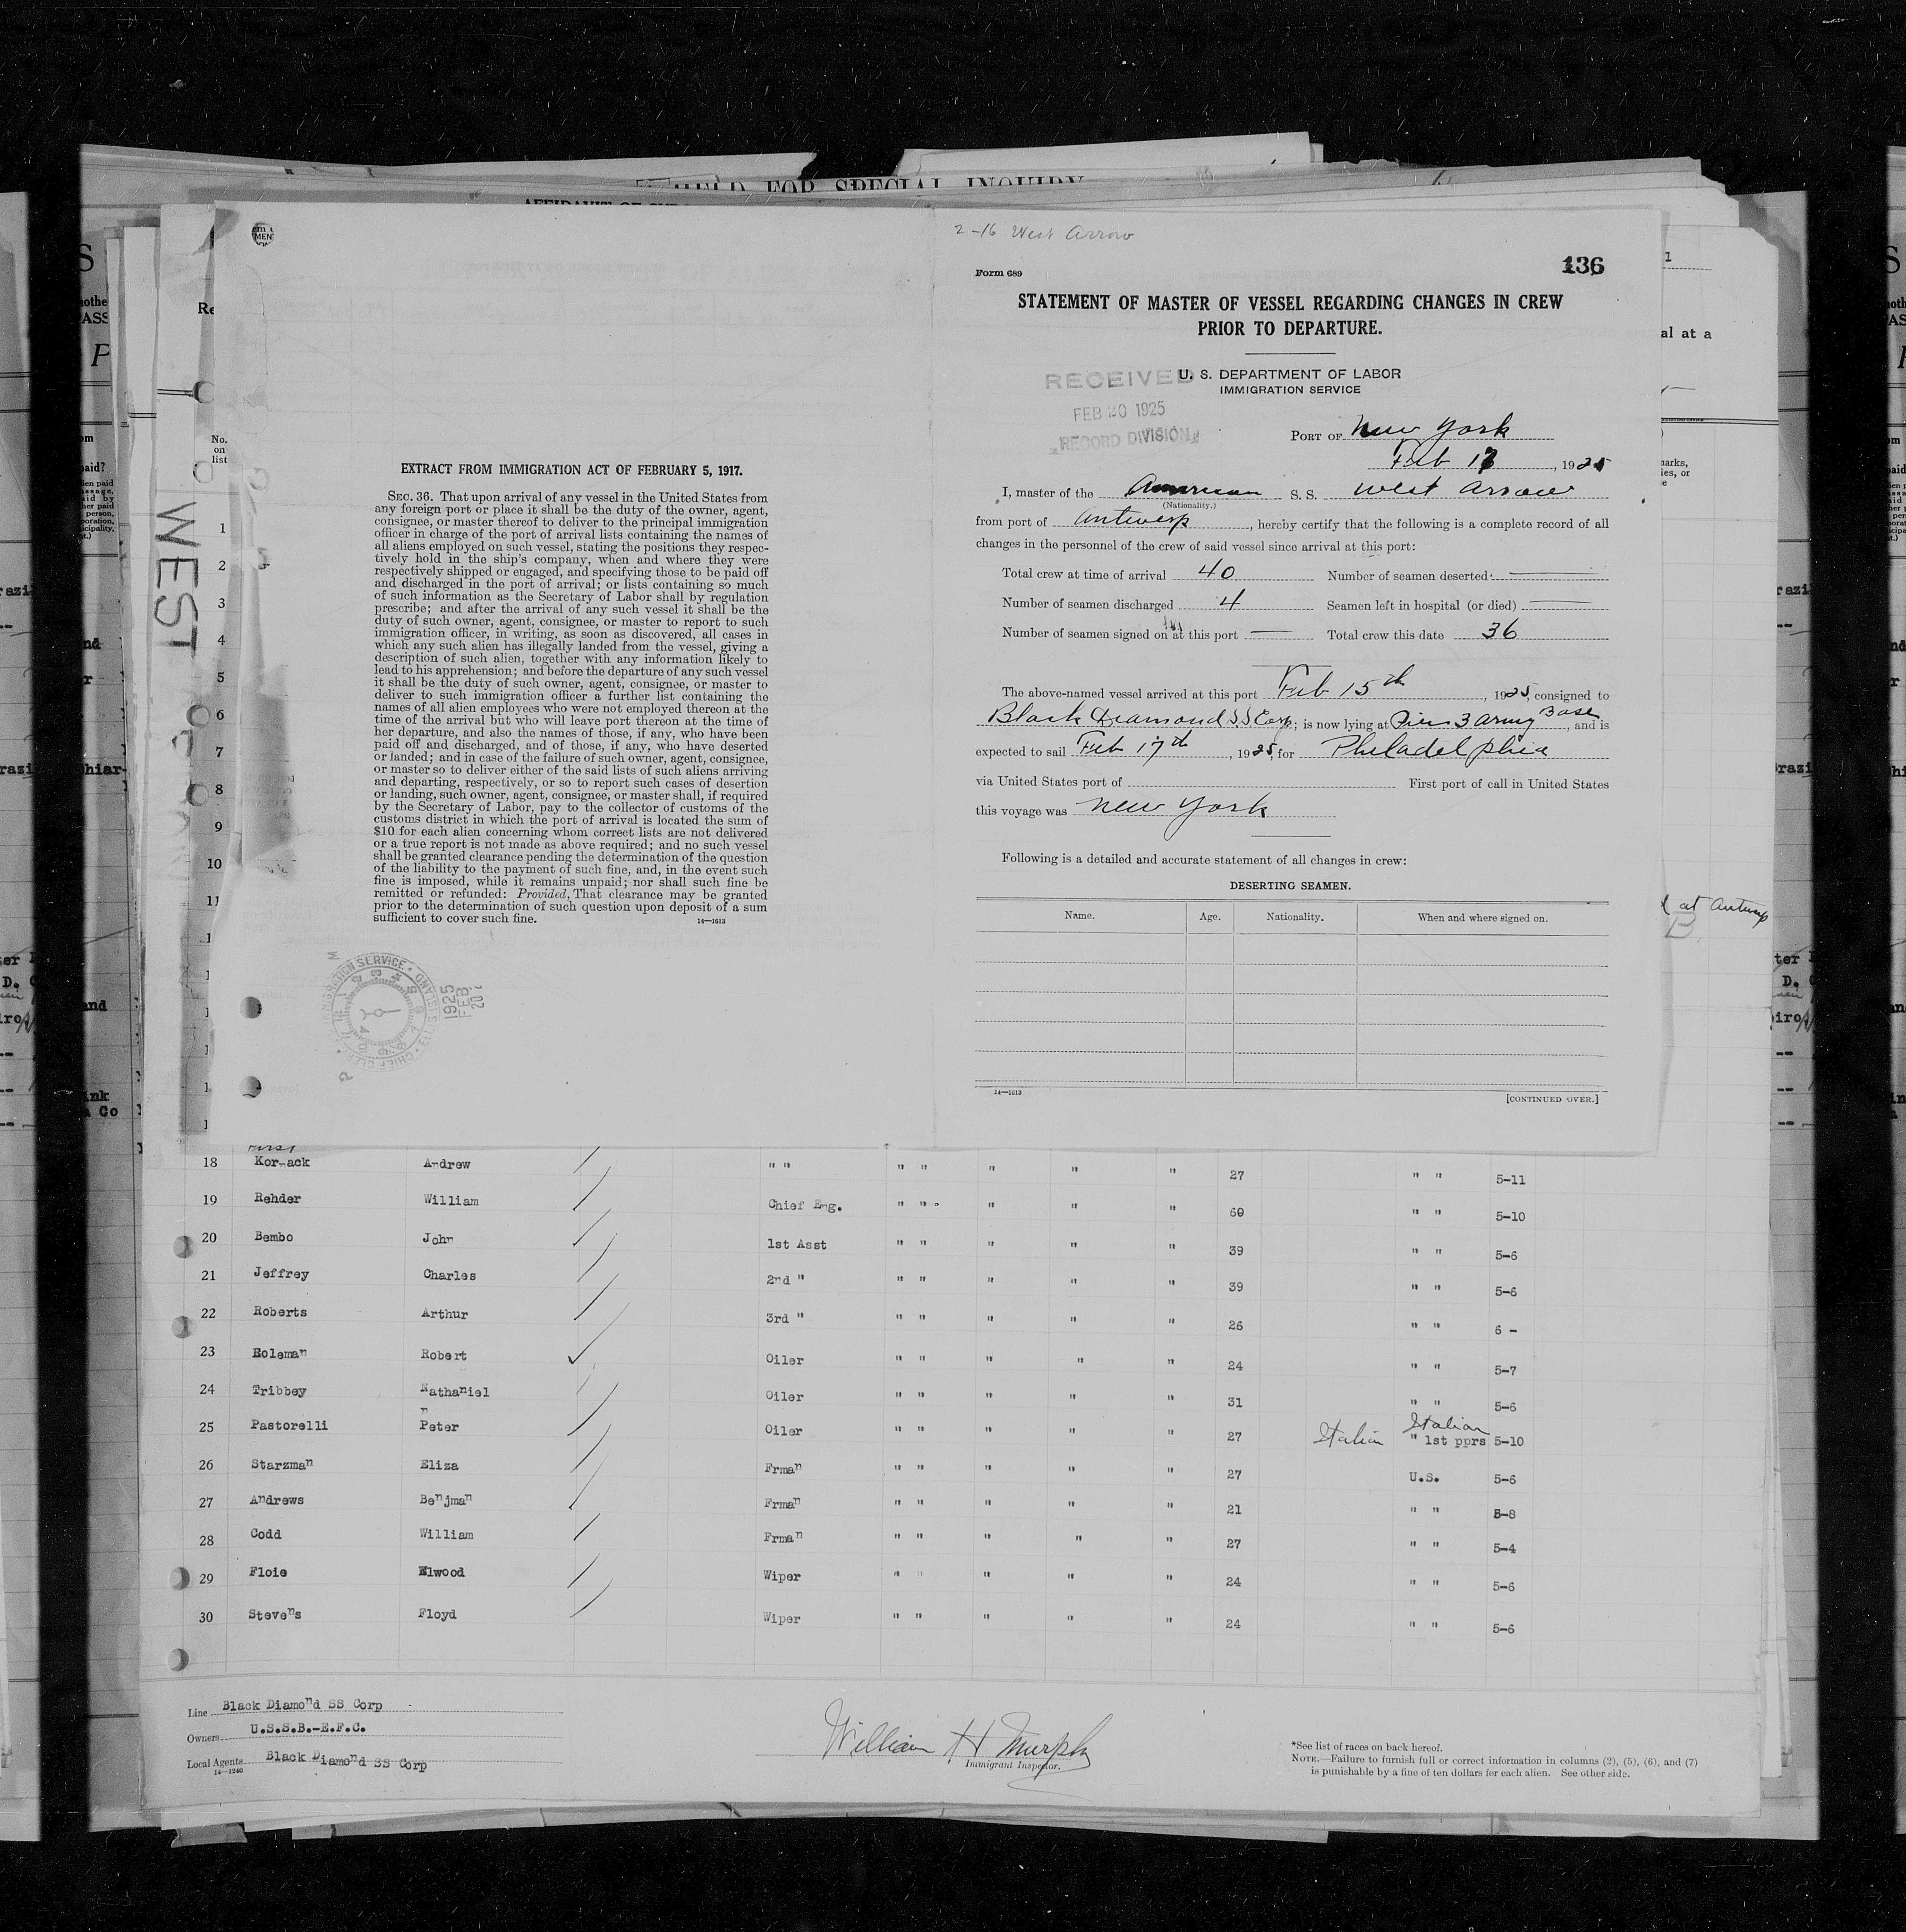 HELD FOR SPECIAL INQUIRY
2-16 West Arrow
136
Form 689
STATEMENT OF MASTER OF VESSEL REGARDING CHANGES IN CREW
PRIOR TO DEPARTURE.
U. S. DEPARTMENT OF LABOR
IMMIGRATION SERVICE
RECEIVED
FEB 20 1925
RECORD DIVISION
PORT OF New York
Feb 17, 1925
I, master of the American S. S. West Arrow
(Nationality.)
from port of Antwerp, hereby certify that the following is a complete record of all
changes in the personnel of the crew of said vessel since arrival at this port:
Total crew at time of arrival 40 Number of seamen deserted —
Number of seamen discharged 4 Seamen left in hospital (or died) —
Number of seamen signed on at this port — Total crew this date 36
The above-named vessel arrived at this port Feb 15th, 1925, consigned to
Black Diamond SS Corp; is now lying at Pier 3 Army Base, and is
expected to sail Feb 17th, 1925, for Philadelphia
via United States port of First port of call in United States
this voyage was New York
Following is a detailed and accurate statement of all changes in crew:
DESERTING SEAMEN.
Name. Age. Nationality. When and where signed on.
14—1613 [CONTINUED OVER.]
EXTRACT FROM IMMIGRATION ACT OF FEBRUARY 5, 1917.
SEC. 36. That upon arrival of any vessel in the United States from
any foreign port or place it shall be the duty of the owner, agent,
consignee, or master thereof to deliver to the principal immigration
officer in charge of the port of arrival lists containing the names of
all aliens employed on such vessel, stating the positions they respec-
tively hold in the ship's company, when and where they were
respectively shipped or engaged, and specifying those to be paid off
and discharged in the port of arrival; or lists containing so much
of such information as the Secretary of Labor shall by regulation
prescribe; and after the arrival of any such vessel it shall be the
duty of such owner, agent, consignee, or master to report to such
immigration officer, in writing, as soon as discovered, all cases in
which any such alien has illegally landed from the vessel, giving a
description of such alien, together with any information likely to
lead to his apprehension; and before the departure of any such vessel
it shall be the duty of such owner, agent, consignee, or master to
deliver to such immigration officer a further list containing the
names of all alien employees who were not employed thereon at the
time of the arrival but who will leave port thereon at the time of
her departure, and also the names of those, if any, who have been
paid off and discharged, and of those, if any, who have deserted
or landed; and in case of the failure of such owner, agent, consignee,
or master so to deliver either of the said lists of such aliens arriving
and departing, respectively, or so to report such cases of desertion
or landing, such owner, agent, consignee, or master shall, if required
by the Secretary of Labor, pay to the collector of customs of the
customs district in which the port of arrival is located the sum of
$10 for each alien concerning whom correct lists are not delivered
or a true report is not made as above required; and no such vessel
shall be granted clearance pending the determination of the question
of the liability to the payment of such fine, and, in the event such
fine is imposed, while it remains unpaid; nor shall such fine be
remitted or refunded: Provided, That clearance may be granted
prior to the determination of such question upon deposit of a sum
sufficient to cover such fine. 14—1613
IMMIGRATION SERVICE
1925
FEB
20
WEST
No.
on
list
1
2
3
4
5
6
7
8
9
10
11
al at a
at Antwerp
B
18 Kornack Andrew " " " " " " " 27 " " 5-11
19 Rehder William Chief Eng. " " " " " 60 " " 5-10
20 Bembo John 1st Asst " " " " " 39 " " 5-6
21 Jeffrey Charles 2nd " " " " " " 39 " " 5-6
22 Roberts Arthur 3rd " " " " " " 26 " " 6 -
23 Holeman Robert Oiler " " " " " 24 " " 5-7
24 Tribbey Nathaniel Oiler " " " " " 31 " " 5-6
25 Pastorelli Peter Oiler " " " " " 27 Italian Italian " 1st pprs 5-10
26 Starzman Eliza Frman " " " " " 27 U.S. 5-6
27 Andrews Benjman Frman " " " " " 21 " " 5-8
28 Codd William Frman " " " " " 27 " " 5-4
29 Floie Elwood Wiper " " " " " 24 " " 5-6
30 Stevens Floyd Wiper " " " " " 24 " " 5-6
Line Black Diamond SS Corp
Owners U.S.S.B.-E.F.C.
Local Agents Black Diamond SS Corp
14—1240
William H Murphy
Immigrant Inspector.
*See list of races on back hereof.
NOTE.—Failure to furnish full or correct information in columns (2), (5), (6), and (7)
is punishable by a fine of ten dollars for each alien. See other side.